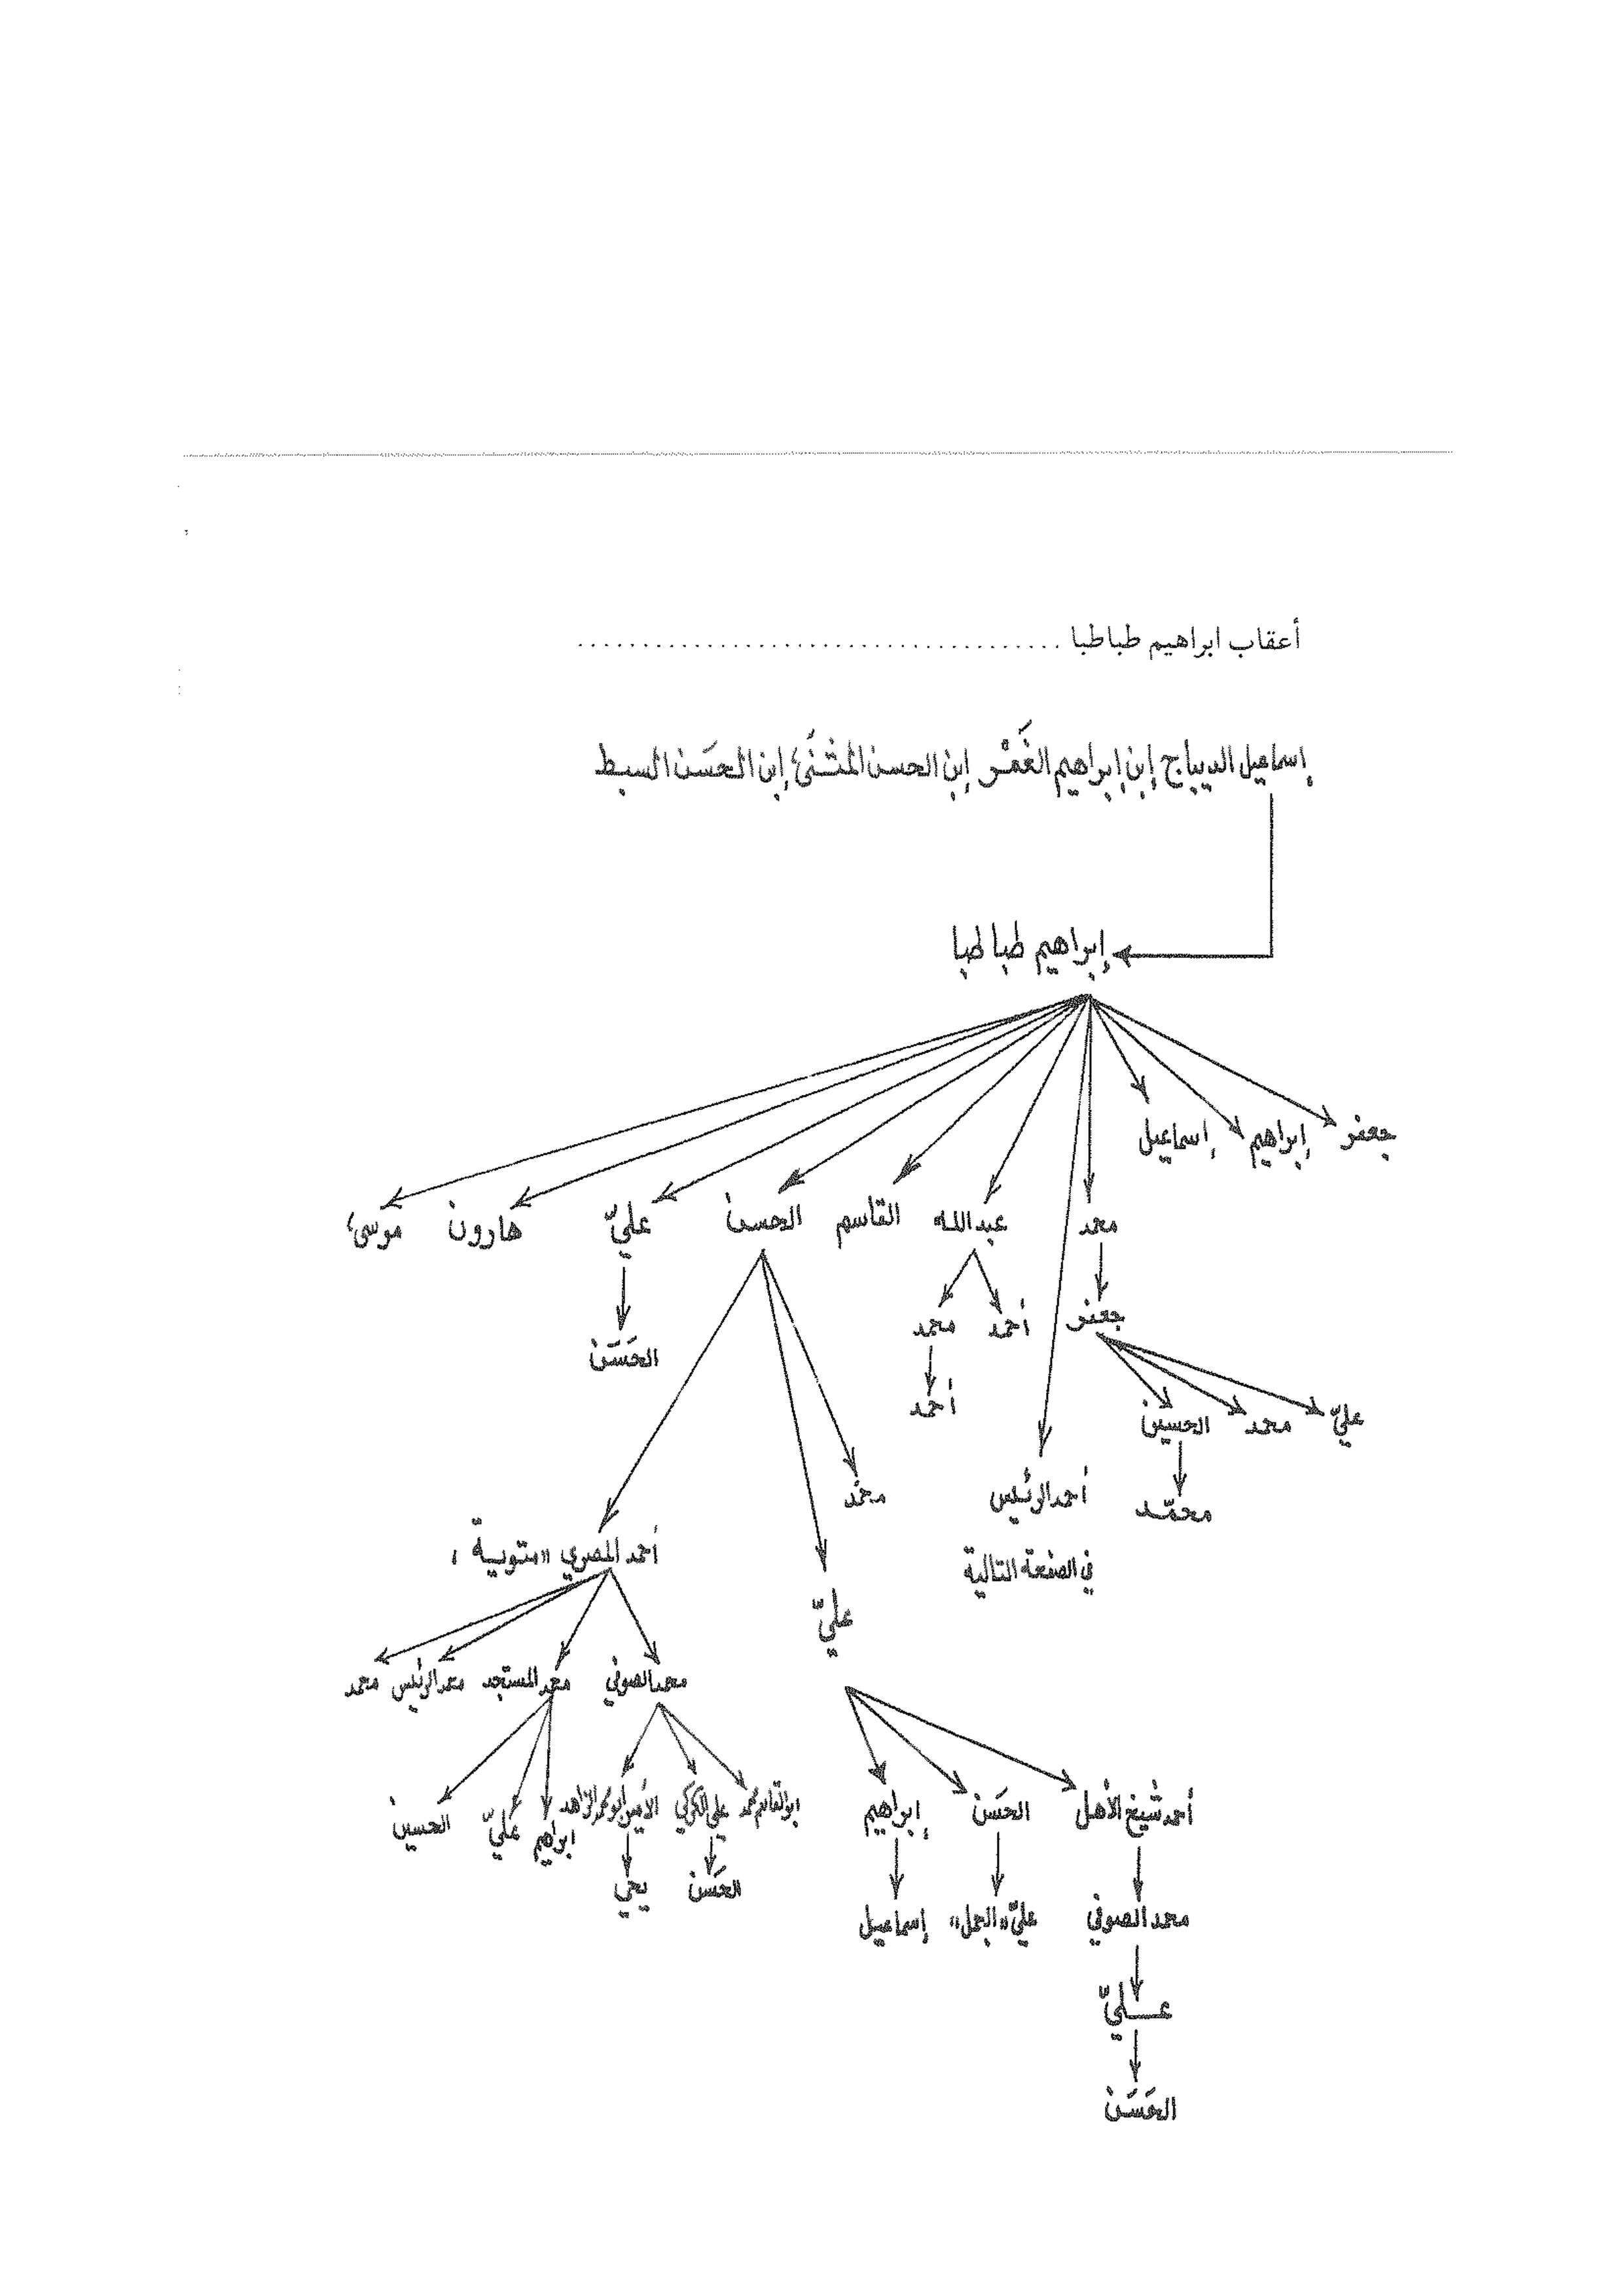 أعقاب ابراهيم طباطبا ....................................
إسماعيل الديباج إبن إبراهيم الغَمْر إبن الحسن المثنَّى إبن الحَسَن السبط
إبراهيم طباطبا
جعفر إبراهيم إسماعيل
محمد عبدالله القاسم الحسن عليّ هارون موسى
جعفر أحمد محمد الحَسَن
أحمد
عليّ محمد الحسين
محمّد أحمد الرئيس محمد
في الصفحة التالية
أحمد المصري «متوية»
عليّ
محمد الصوفي محمد المستجد محمد الرئيس محمد
أحمد شيخ الأهل الحَسَن إبراهيم
ابوالقاسم محمد علي الكركي الأمين ابو محمد الزاهد ابراهيم عليّ الحسين
الحَسَن يحي
محمد الصوفي عليّ «الجمل» إسماعيل
عليّ
الحَسَن